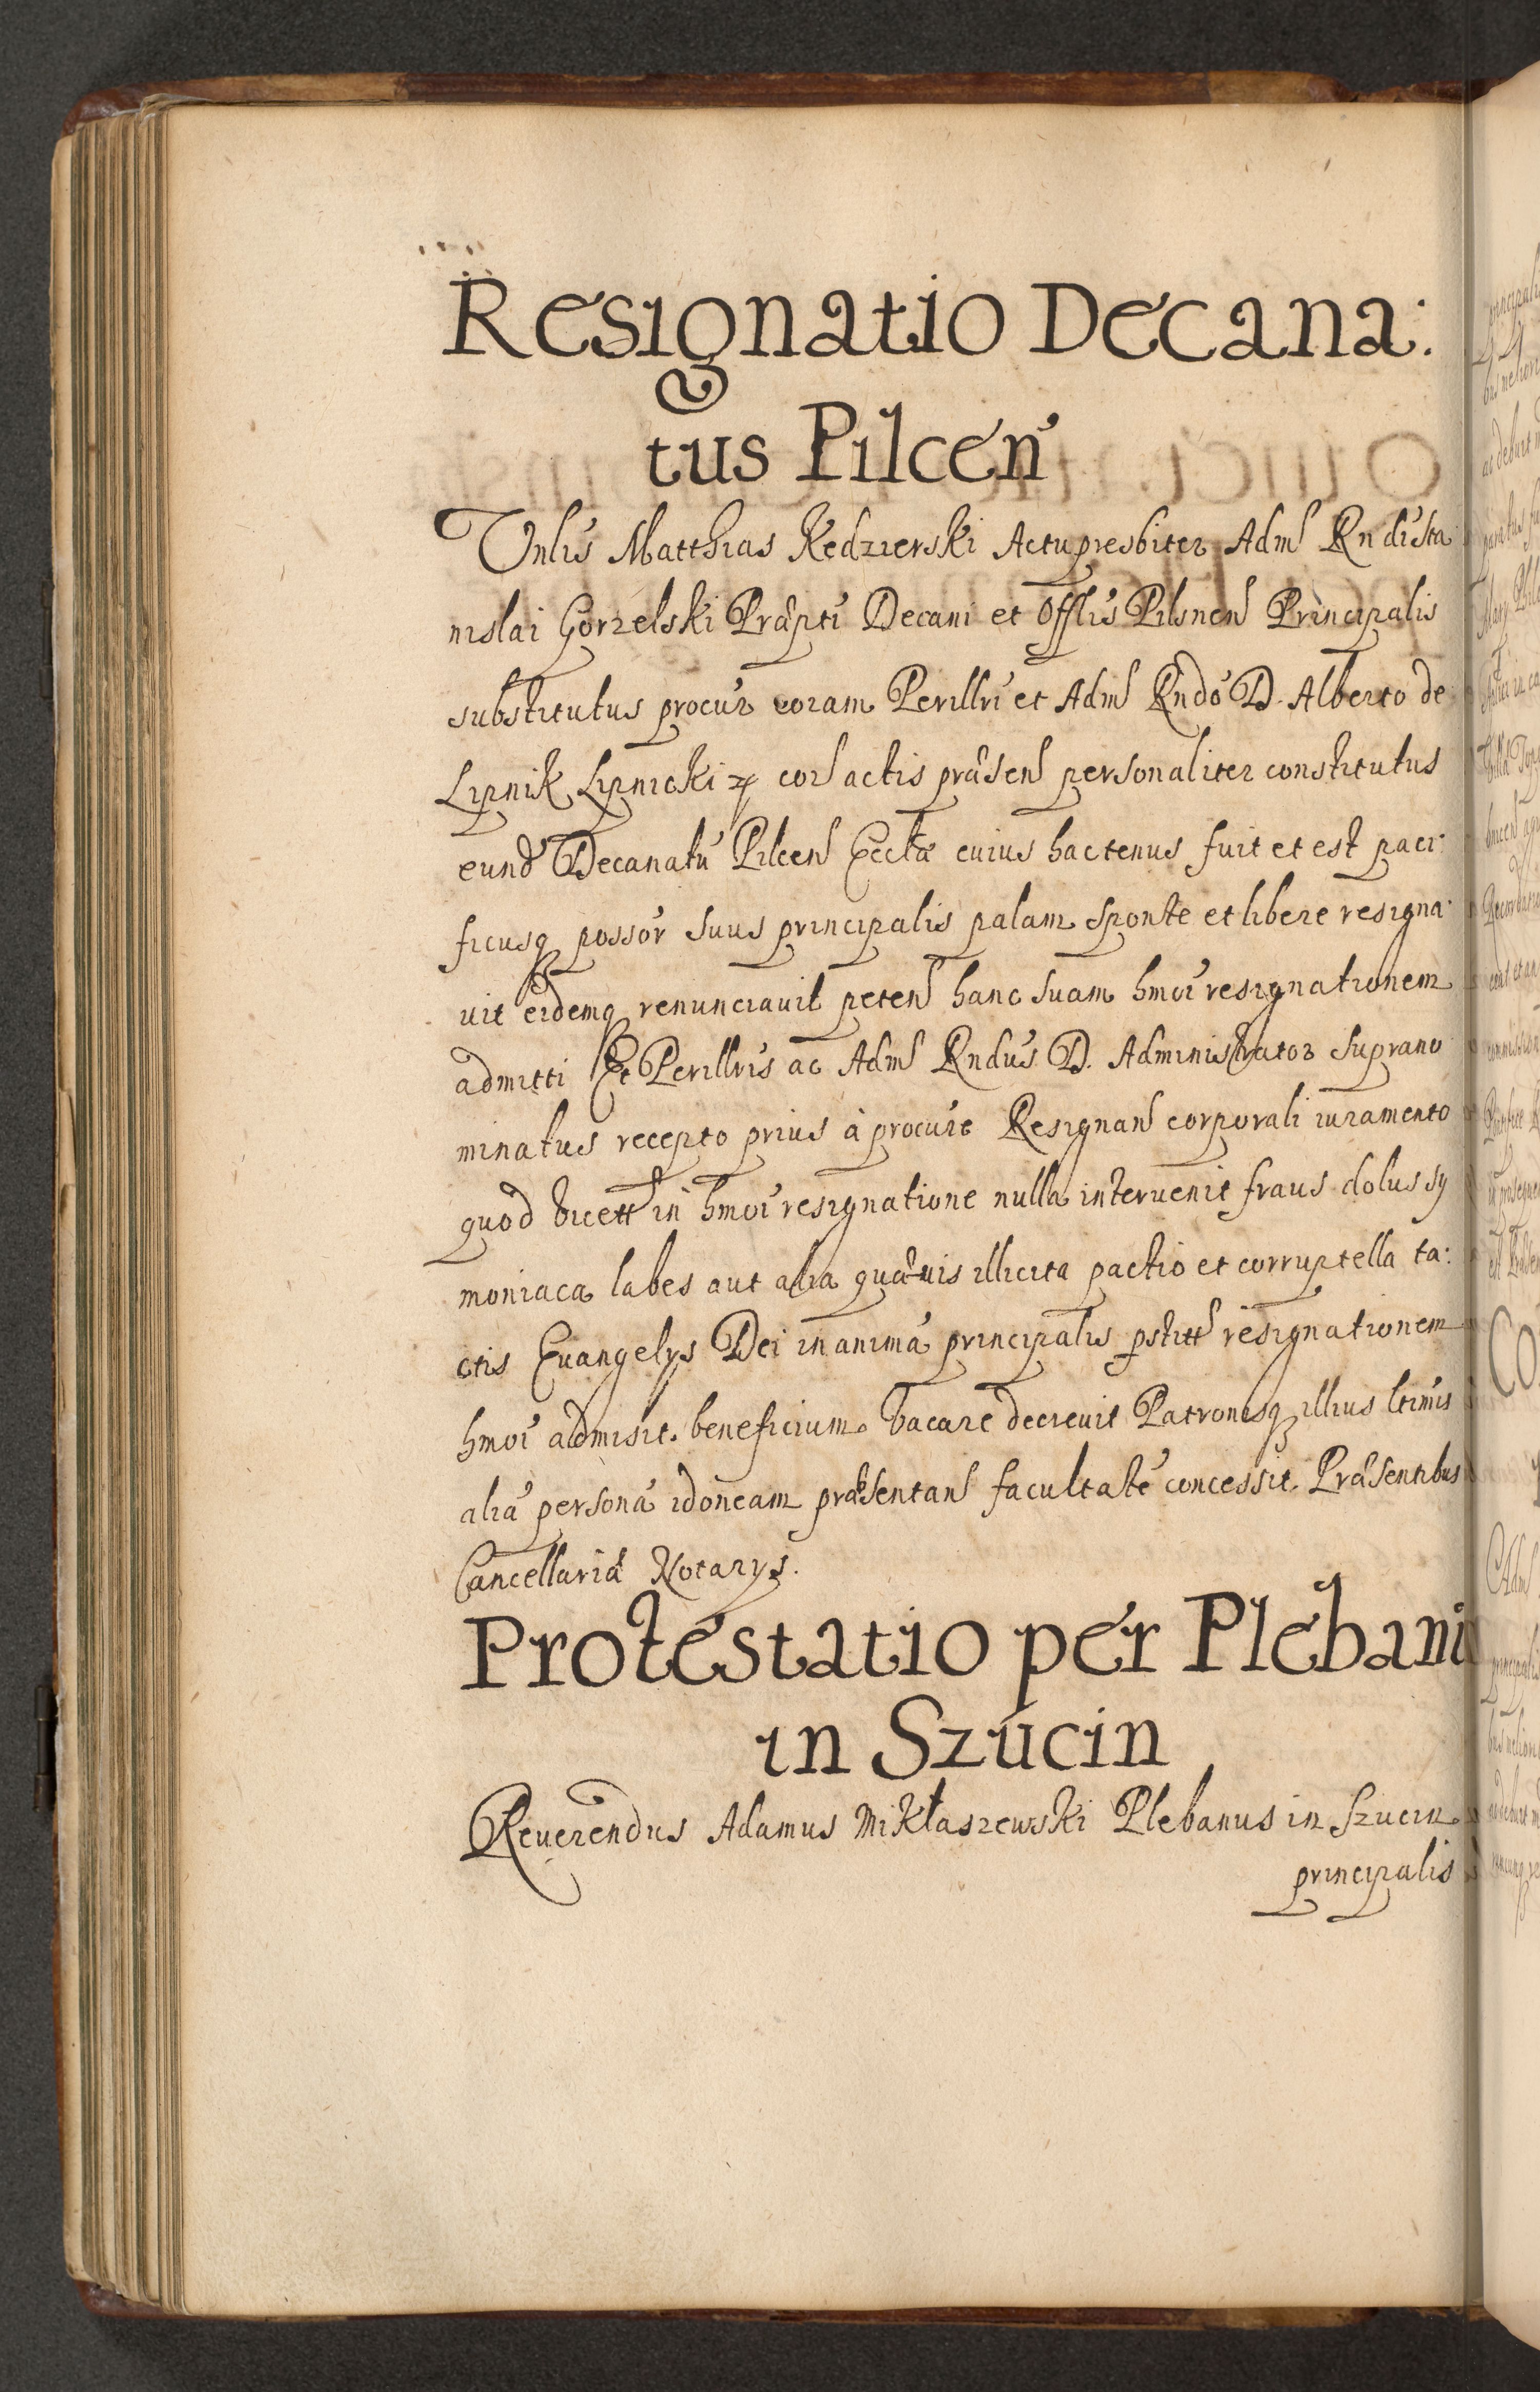 Resignatio Decana:
tus Pilcen̄
Vnlis Matthias Kedzierski Actupresbiter Adm̄ Rndi Sta
nislai Gorzelski Præpti Decani et Offlis Pilsnen̄ Principalis
substitutus procur coram Perillri et Adm̄ Rndo D. Alberto de
Lipnik Lipnicki cor̄ actis præsen̄ personaliter constitutus
eund Decanatū Pilcen̄ Eccltæ cuius hactenus fuit et est paci:
ficusq possor suus principalis palam sponte et libere resigna:
uit eidemq renunciauit peten̄ hanc suam hmoi resignationem
admitti Et Perillris ac Adm̄ Rndus D. Administrator supranо
minatus recepto prius à procure Resignan̄ corporali iuramento
quod licett in hmoi resignatione nulla interuenit fraus dolus sy
moniaca labes aut alia quæuis illicita pactio et corruptella ta:
ctis Euangelys Dei in animā principalis pstitt resignationem
hmoi admisit. beneficium vacare decreuit Patronisq illius ltimis
aliā personā idoneam præsentan̄ facultatē concessit. Præsentibus
Cancellariæ Notarys.
Protestatio per Plebani
in Szucin
Reuerendus Adamus Mikłaszewski Plebanus in Szucin
principalis